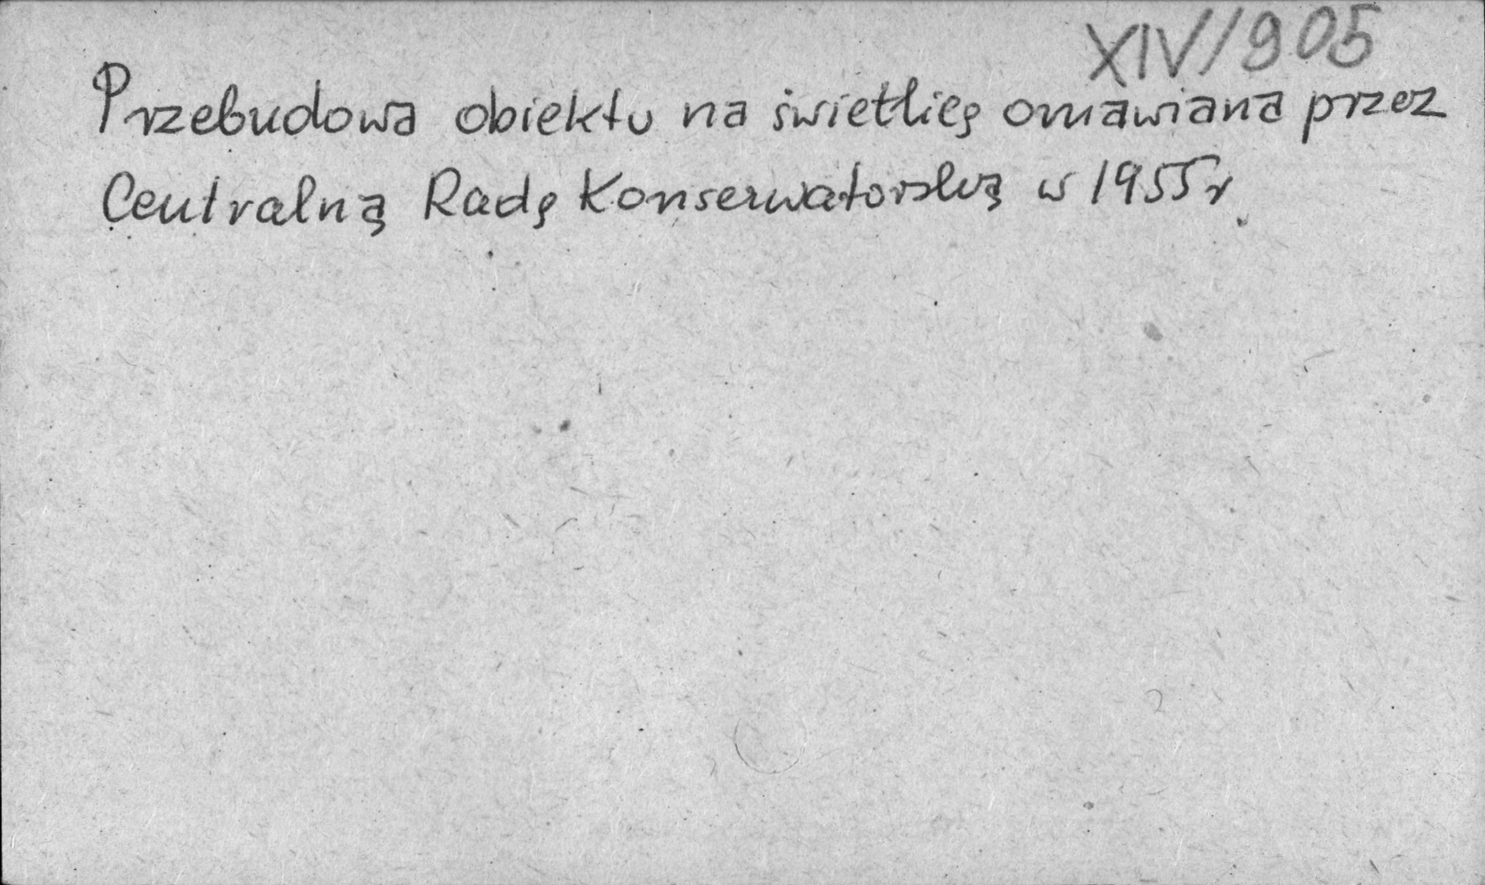 XIV/905
Przebudowa obiektu na świetlicę omawiana przez
Centralną Radę Konserwatorską w 1955r.